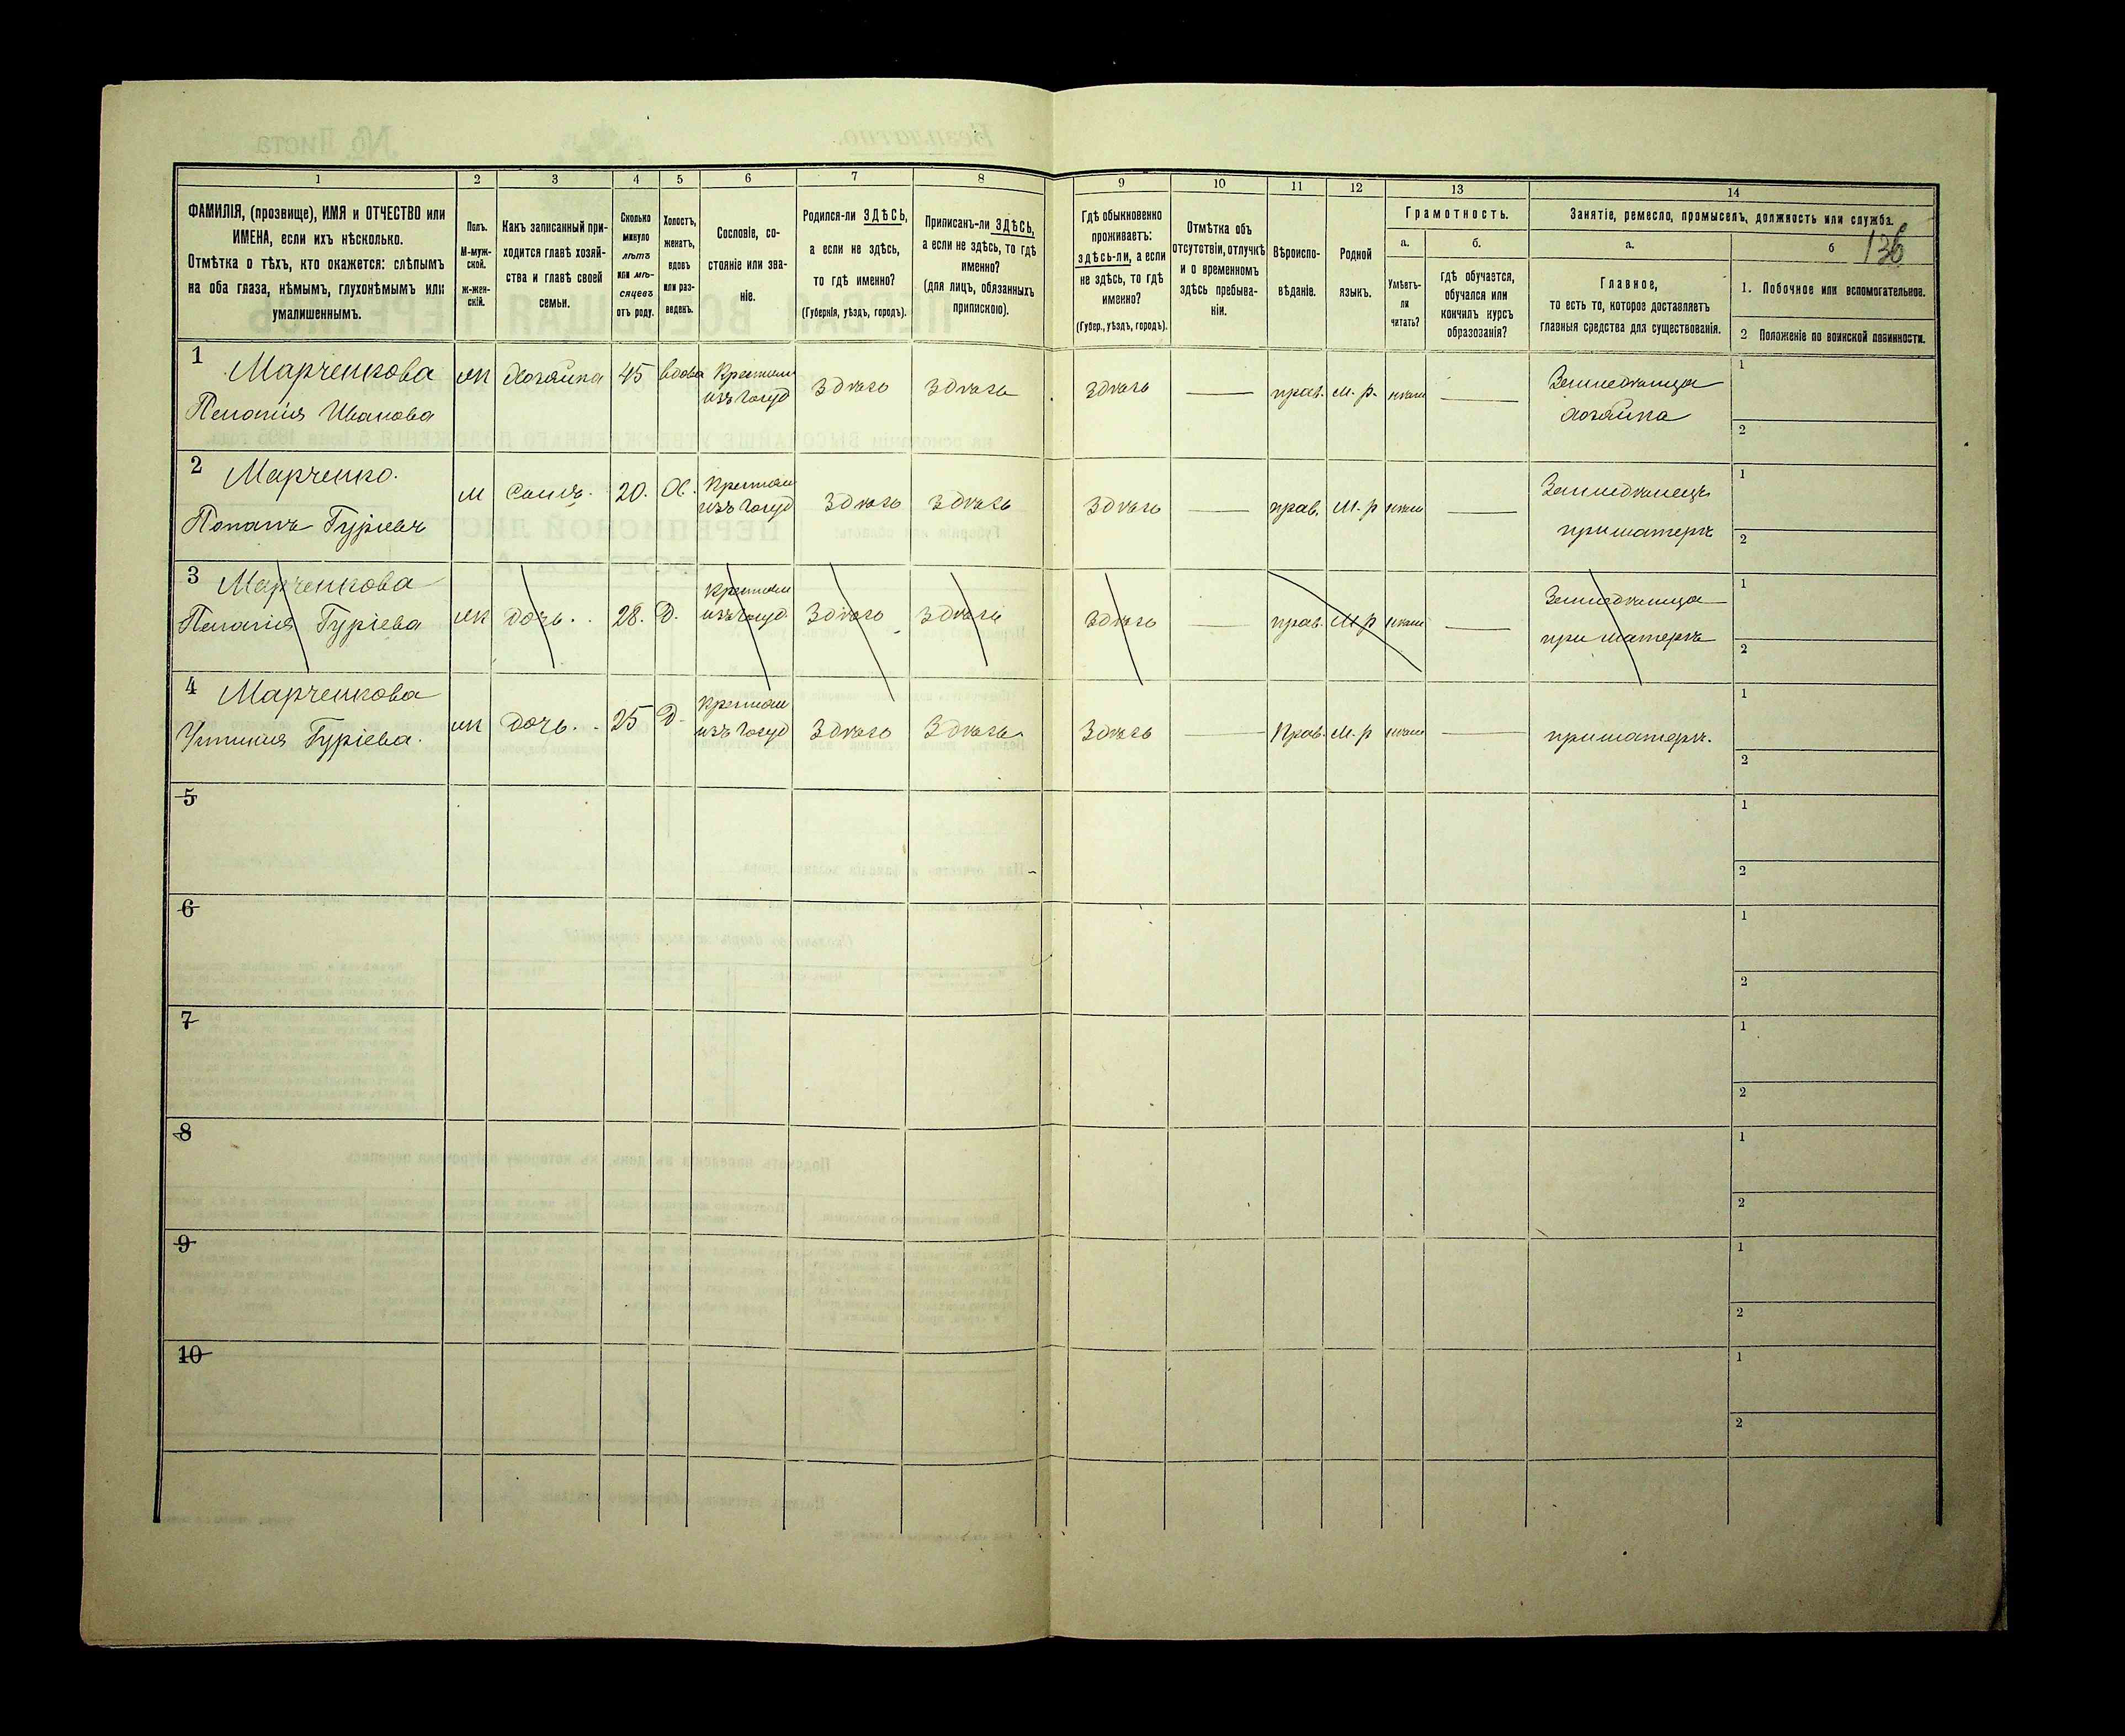 1 2 3 4 5 6 7 8 9 10 11 12 13 14
ФАМИЛІЯ, (прозвище), ИМЯ и ОТЧЕСТВО или
ИМЕНА, если ихъ нѣсколько.
Отмѣтка о тѣхъ, кто окажется: слѣпымъ
на оба глаза, нѣмымъ, глухонѣмымъ или
умалишеннымъ.
Полъ.
М-муж-
ской.
ж-жен-
скій.
Какъ записанный при-
ходится главѣ хозяй-
ства и главѣ своей
семьи.
Сколько
минуло
лѣтъ
или мѣ-
сяцевъ
отъ роду.
Холостъ,
женатъ,
вдовъ
или раз-
веденъ.
Сословіе, со-
стояніе или зва-
ніе.
Родился-ли ЗДѢСЬ,
а если не здѣсь,
то гдѣ именно?
(Губернія, уѣздъ, городъ).
Приписанъ-ли ЗДѢСЬ,
а если не здѣсь, то гдѣ
именно?
(для лицъ, обязанныхъ
припискою).
Гдѣ обыкновенно
проживаетъ:
здѣсь-ли, а если
не здѣсь, то гдѣ
именно?
(Губер., уѣздъ, городъ).
Отмѣтка объ
отсутствіи, отлучкѣ
и о временномъ
здѣсь пребыва-
ніи.
Вѣроиспо-
вѣданіе.
Родной
языкъ.
Грамотность.
а.
Умѣетъ-
ли
читать?
б.
гдѣ обучается,
обучался или
кончилъ курсъ
образованія?
Занятіе, ремесло, промыселъ, должность или служба.
а.
Главное,
то есть то, которое доставляетъ
главныя средства для существованія.
б 136
1. Побочное или вспомогательное.
2 Положеніе по воинской повинности.
1 Марченкова
Пелагія Иванова
ж Хозяйка 45 вдова Крестьян
изъ госуд Здѣсь Здѣсь Здѣсь прав. м. р. нѣтъ Земледѣлица
хозяйка 1
2
2 Марченко.
Потапъ Гуріевъ
м Сынъ. 20. Х. Крестьян
изъ госуд Здѣсь Здѣсь Здѣсь прав. м. р нѣтъ Земледѣлецъ
при матери 1
2
3 Марченкова
Пелагія Гуріева
ж дочь. 28. Д. Крестьян
изъ госуд Здѣсь Здѣсь Здѣсь прав. м р нѣтъ Земледѣлица
при матери 1
2
4 Марченкова
Устинія Гуріева.
ж дочь. 25 Д Крестьян
изъ госуд Здѣсь Здѣсь Здѣсь Прав. м. р нѣтъ при матери. 1
2
5 1
2
6 1
2
7 1
2
8 1
2
9 1
2
10 1
2